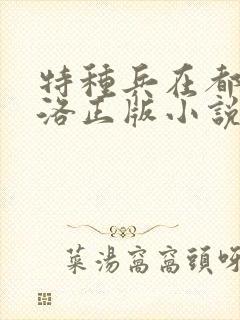 特種兵在都
洛正版小說
菜湯窩窩頭呀